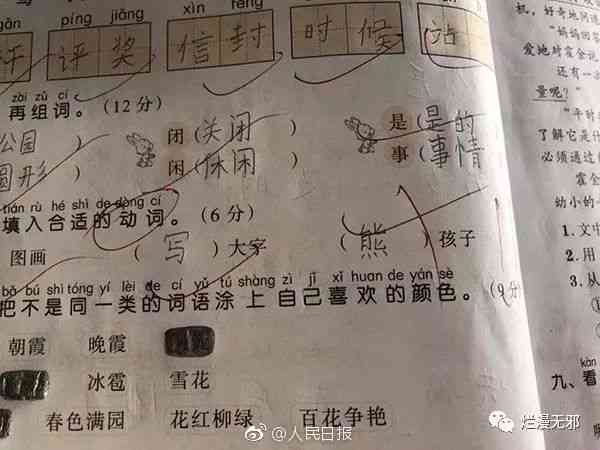 píng jiǎng xìn fēng
评 奖 信 封 时 候 站
zài zǔ cí
再组词。(12分)
公园 闭(关闭) 是(是的
圆形) 闲(休闲) 事(事情
tián rù hé shì de dòng cí
填入合适的动词。(6分)
图画 (写)大字 (熊)孩子
bǎ bú shì tóng yí lèi de cí yǔ tú shàng zì jǐ xǐ huan de yán sè
把不是同一类的词语涂上自己喜欢的颜色。(9分
朝霞 晚霞
冰雹 雪花
春色满园 花红柳绿 百花争艳
机,好奇地问道
"妈妈回答
爱地对霍金说
还有一
量呢?"
"平时
了解它是什
必须通过
霍金
幼小的
1.文中
2.用
3.从
kàn
九、看
@人民日报
烂漫无邪